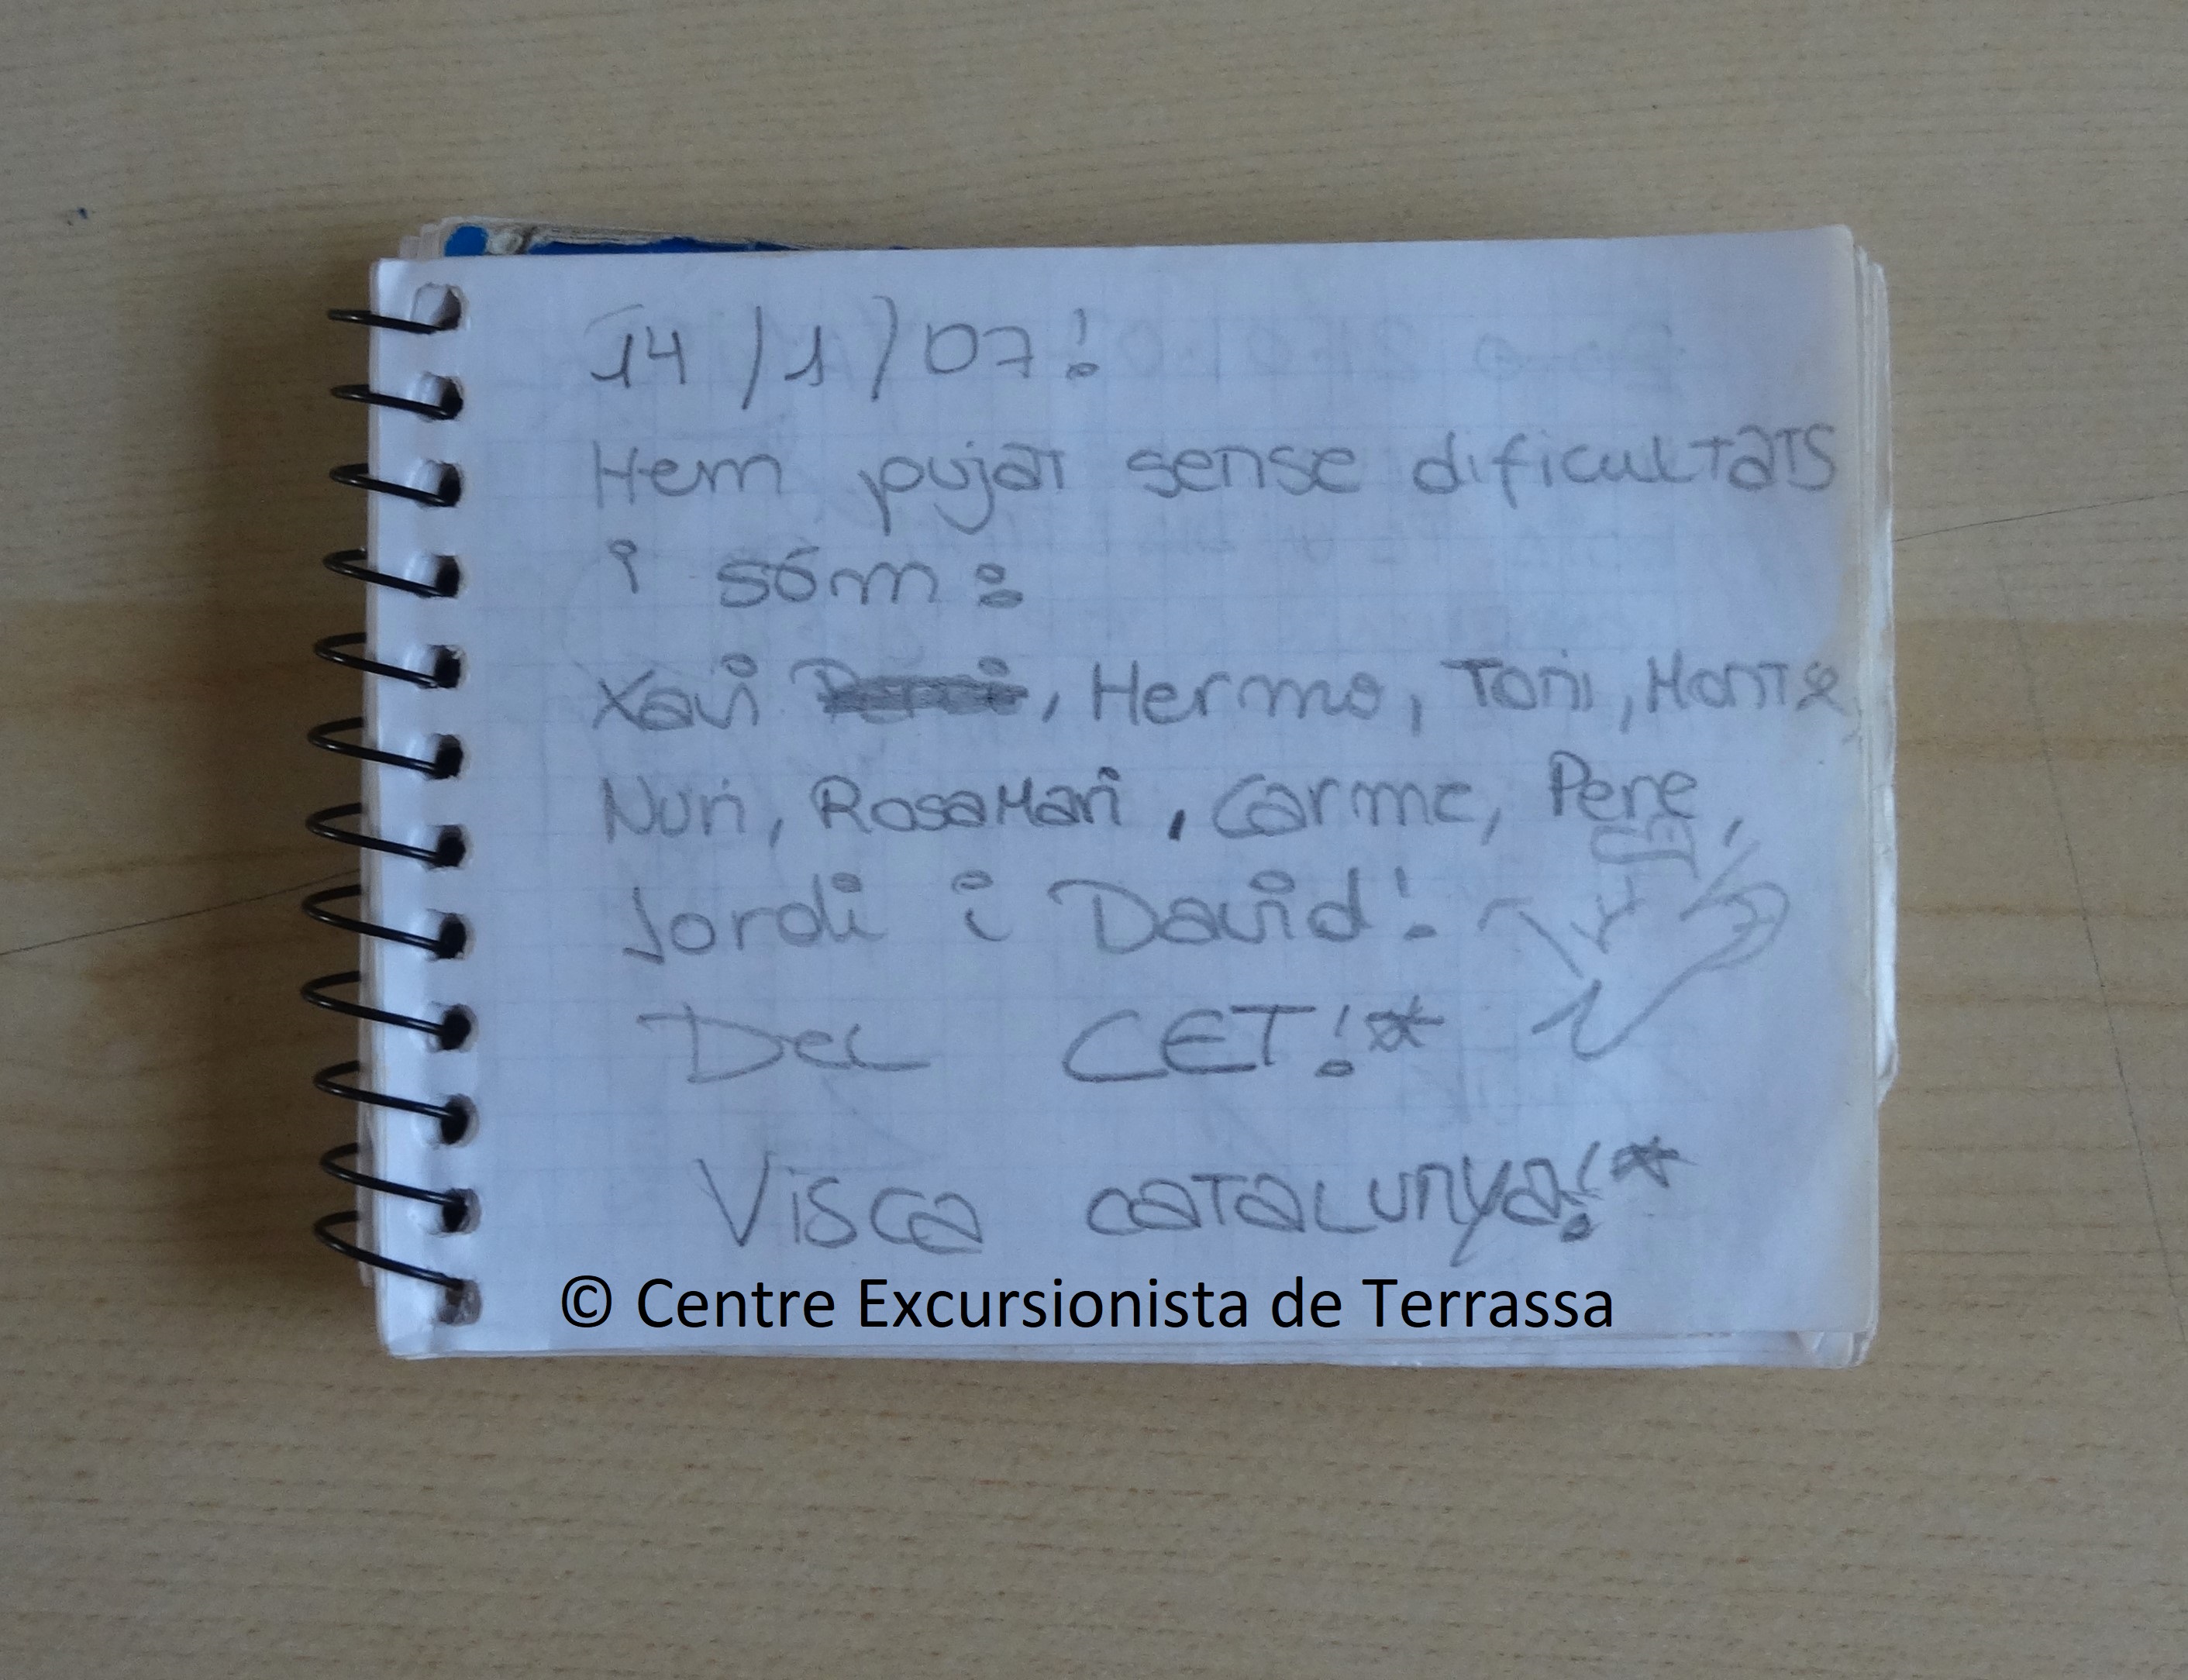 14/1/07!
Hem pujat sense dificultats
i sóm:
Xavi , Hermo, Toni, Montse,
Nuri, RosaMari, Carme, Pere,
Jordi i David!
Del CET!*
Visca catalunya!*
© Centre Excursionista de Terrassa